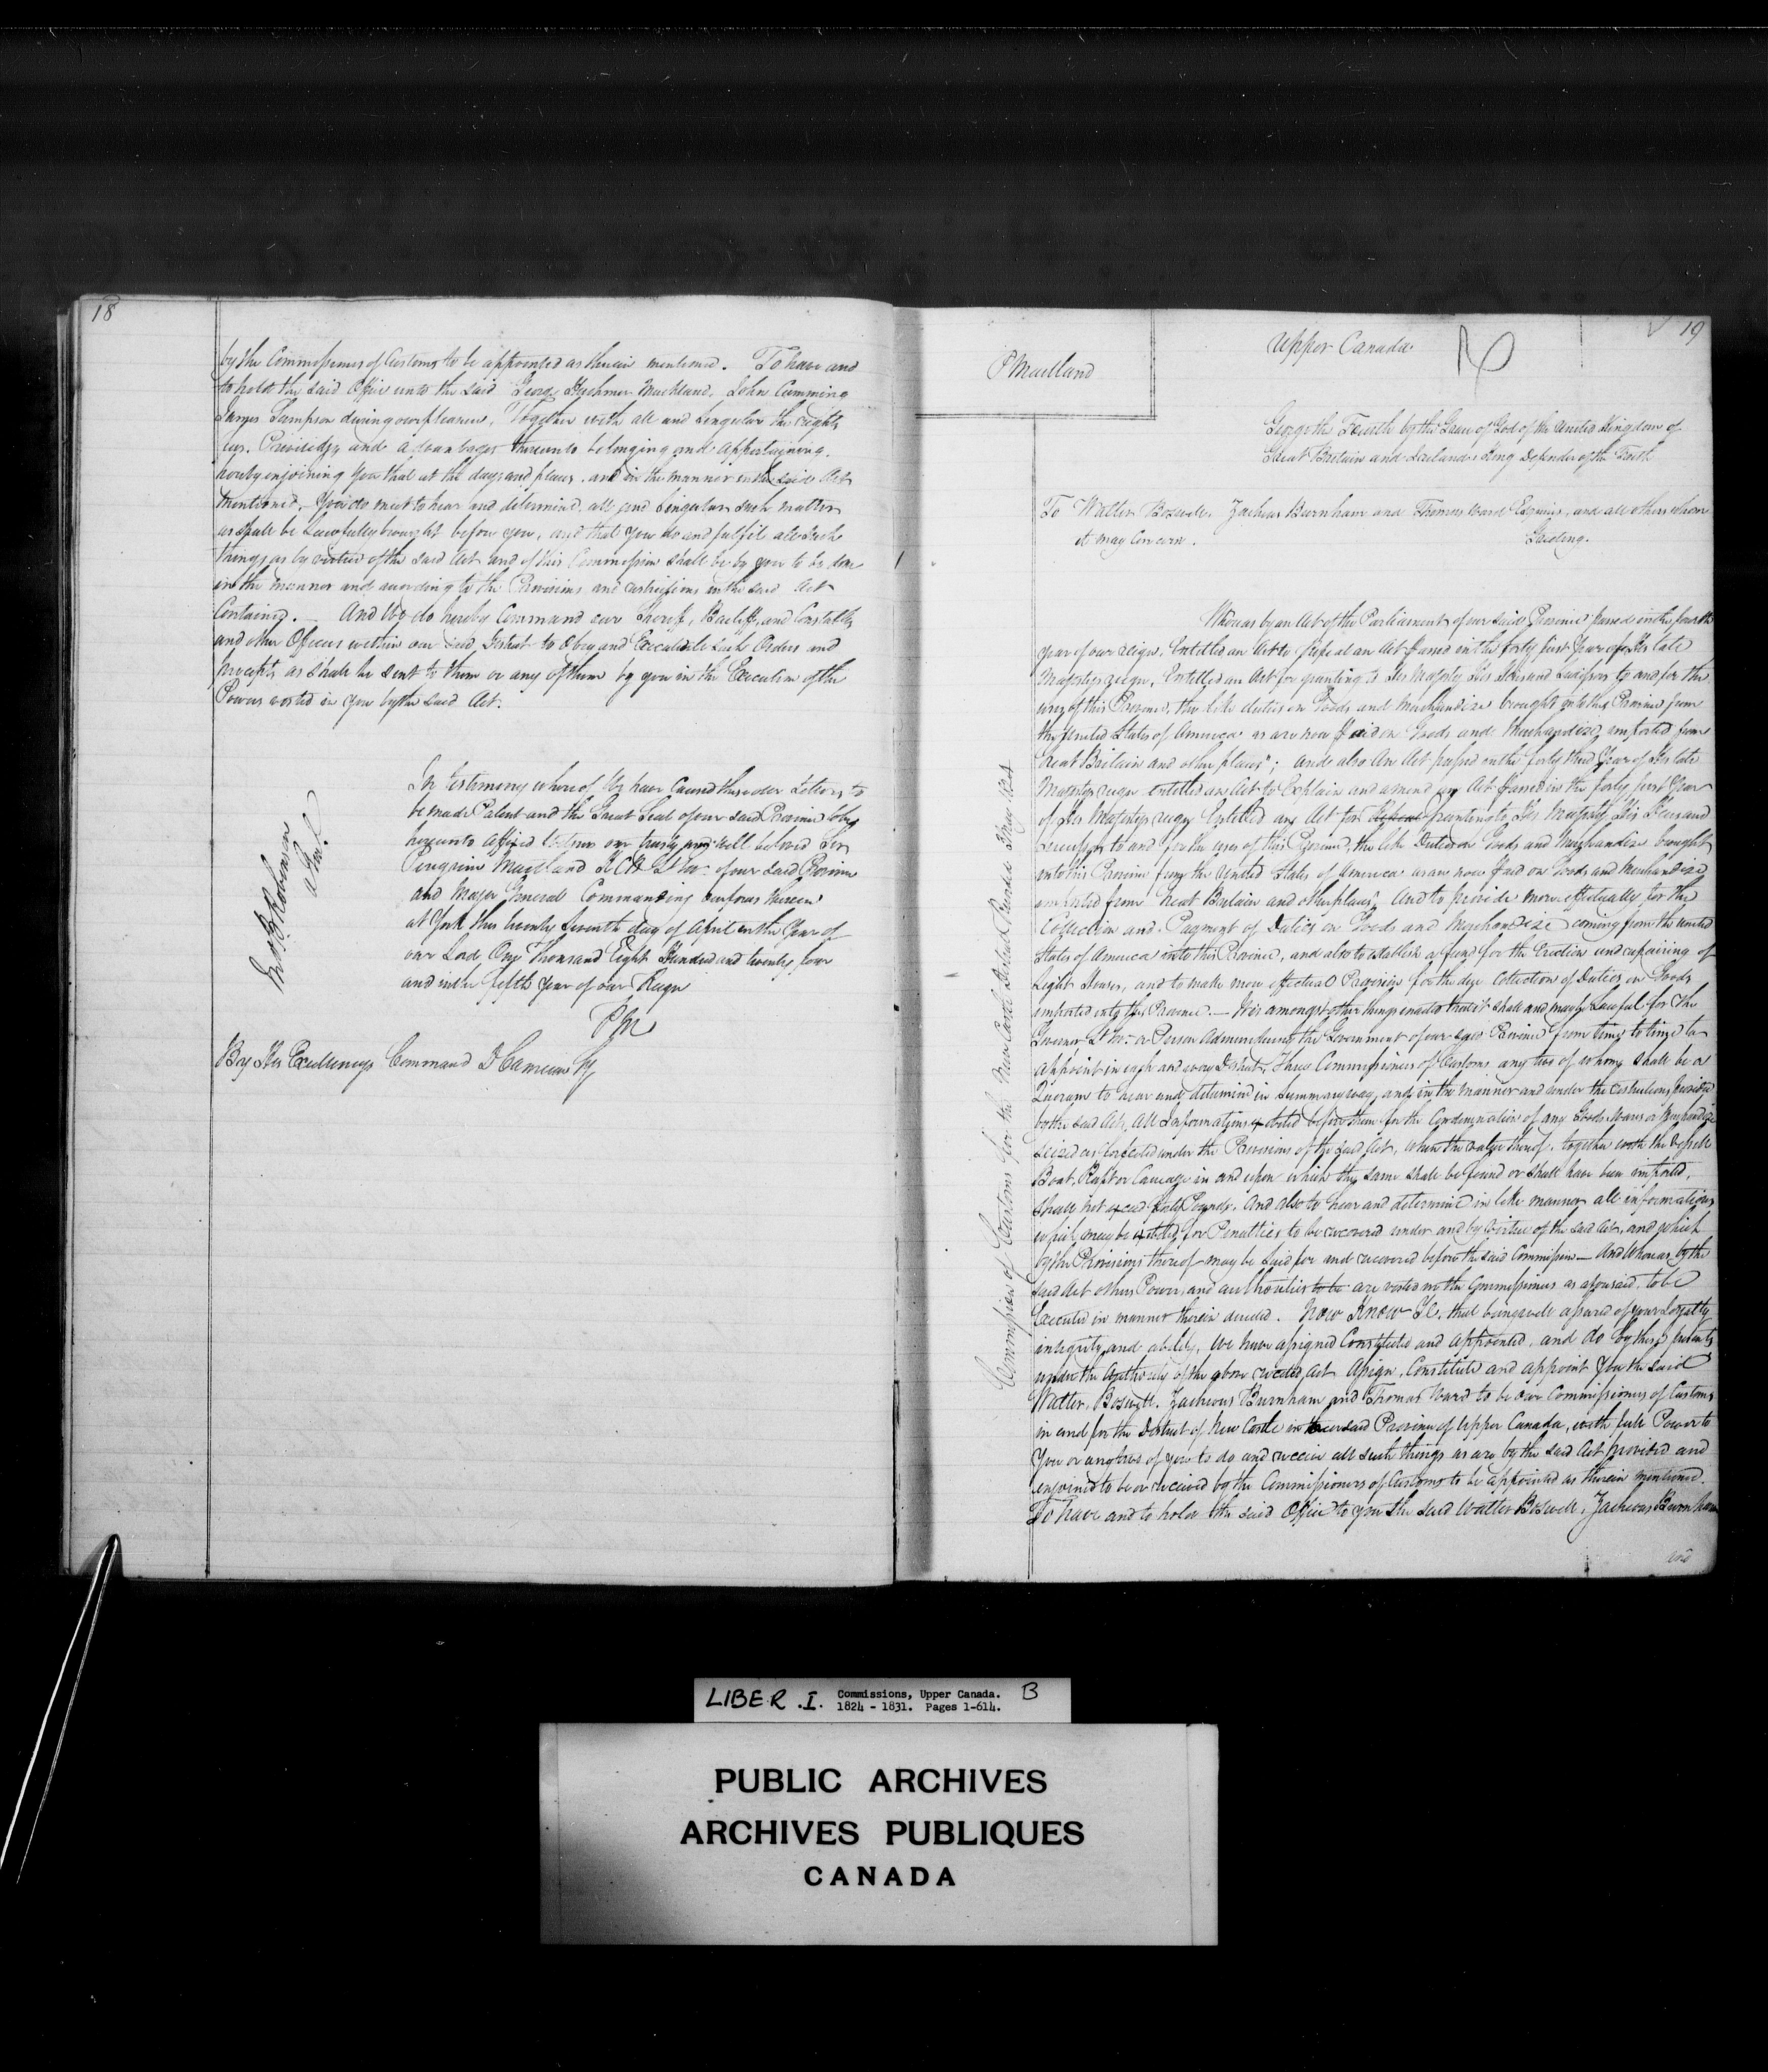 18
by the Commissioners of Customs to be appointed as therein mentioned. To have and
to hold the said Office unto the said George Herchmer Markland, John Cumming
James Sampson during our pleasure, Together with all and Singular the rights
Priviledges and advantages thereunto belonging and appertaining.
hereby enjoining You that at the days and places and in the manner in the said Act
mentioned, You do meet to hear and determine all and Singular such matters
as shall be Lawfully brought before you, and that you do and fulfil all such
things as by virtue of the said Act and of this Commission shall be by you to be done
in the manner and according to the Provisions and restrictions in the said Act
Contained. — And We do hereby Command our Sheriff, Bailiffs, and Constables
and other Officers within our said District to Obey and Execute Such Orders and
precepts as shall be sent to them or any of them by you in the Execution of the
Powers vested in you by the said Act.
In testimony whereof We have Caused these our Letters to
be made Patent and the Great Seal of our said Province to be
hereunto affixed Witness our trusty and well beloved Sir
Peregrine Maitland K.C.B. Lt Gov. of our said Province
and Major General Commanding our forces therein
at York this twenty Seventh day of April in the Year of
our Lord One Thousand Eight Hundred and twenty four
and in the fifth Year of our Reign
P M
Jno B Robinson
Atty Genl
By His Excellencys Command D Cameron Sy
19
P Maitland
Upper Canada
George the Fourth by the Grace of God of the United Kingdom of
Great Britain and Ireland King Defender of the Faith
To Walter Boswell, Zacheus Burnham and Thomas Ward Esquires, and all others whom
it may Concern.
Greeting.
Commission of Customs for the New Castle District
1824
Whereas by an Act of the Parliament of our said Province passed in the fourth
year of our reign, Entitled an Act to repeal an Act passed in the forty first Year of His late
Majestys reign, Entitled an Act for granting to His Majesty His Heirs and Successors to and for the
uses of this Province, the like duties on Goods and Merchandize brought into this Province from
the United States of America as are now paid on Goods and Merchandize imported from
Great Britain and other places"; and also An Act passed in the forty third Year of His late
Majestys reign entitled an Act to Explain and amend an Act passed in the forty first Year
of His Majestys reign Entitled an Act for granting to His Majesty His Heirs and
Successors to and for the uses of this Province, the like Duties on Goods and Merchandize brought
into this Province from the United States of America as are now Paid on Goods and Merchandize
imported from Great Britain and other places, And to provide more effectually for the
Collection and Payment of Duties on Goods and Merchandize coming from the United
States of America into this Province, and also to establish a fund for the Erection and repairing of
Light Houses, and to make more effectual Provision for the due Collection of Duties on Goods
imported into this Province. — It is amongst other things enacted that it shall and may be Lawful for the
Governor Lt Gov. or Person Administering the Government of our said Province from time to time to
appoint in each and every District, Three Commissioners of Customs any two of whom shall be a
Quorum to hear and determine in Summary way, and in the manner and under the restrictions provided
by the said Act, All Informations exhibited before them for the Condemnation of any Goods Wares or Merchandize
seized as forfeited under the Provisions of the said Act, when the value thereof, together with the Vessell
Boat, Raft or Carriage in and upon which the same shall be found or shall have been imported,
shall not exceed forty Pounds, And also to hear and determine in like manner all informations
which may be exhibited for Penalties to be recovered under and by virtue of the said Act, and which
by the Provisions thereof may be Sued for and recovered before the said Commission — And Whereas by the
said Act other Powers and authorities to be are vested in the Commissioners as aforesaid, to be
Executed in manner therein directed. Now Know Ye, that being well assured of your Loyalty
integrity and ability, We have assigned Constituted and appointed, and do by these presents
under the Authority of the above recited Act Assign, Constitute and appoint you the said
Walter Boswell, Zacheus Burnham and Thomas Ward to be our Commissioners of Customs
in and for the District of New Castle in our said Province of Upper Canada, with full Power to
You or any two of you to do and receive all such things as are by the said Act provided and
enjoined to be or received by the Commissioners of Customs to be appointed as therein mentioned
To have and to hold the said Office to you the said Walter Boswell, Zacheus Burnham
and
LIBER .I. Commissions, Upper Canada. B
1824 - 1831. Pages 1-614.
PUBLIC ARCHIVES
ARCHIVES PUBLIQUES
CANADA